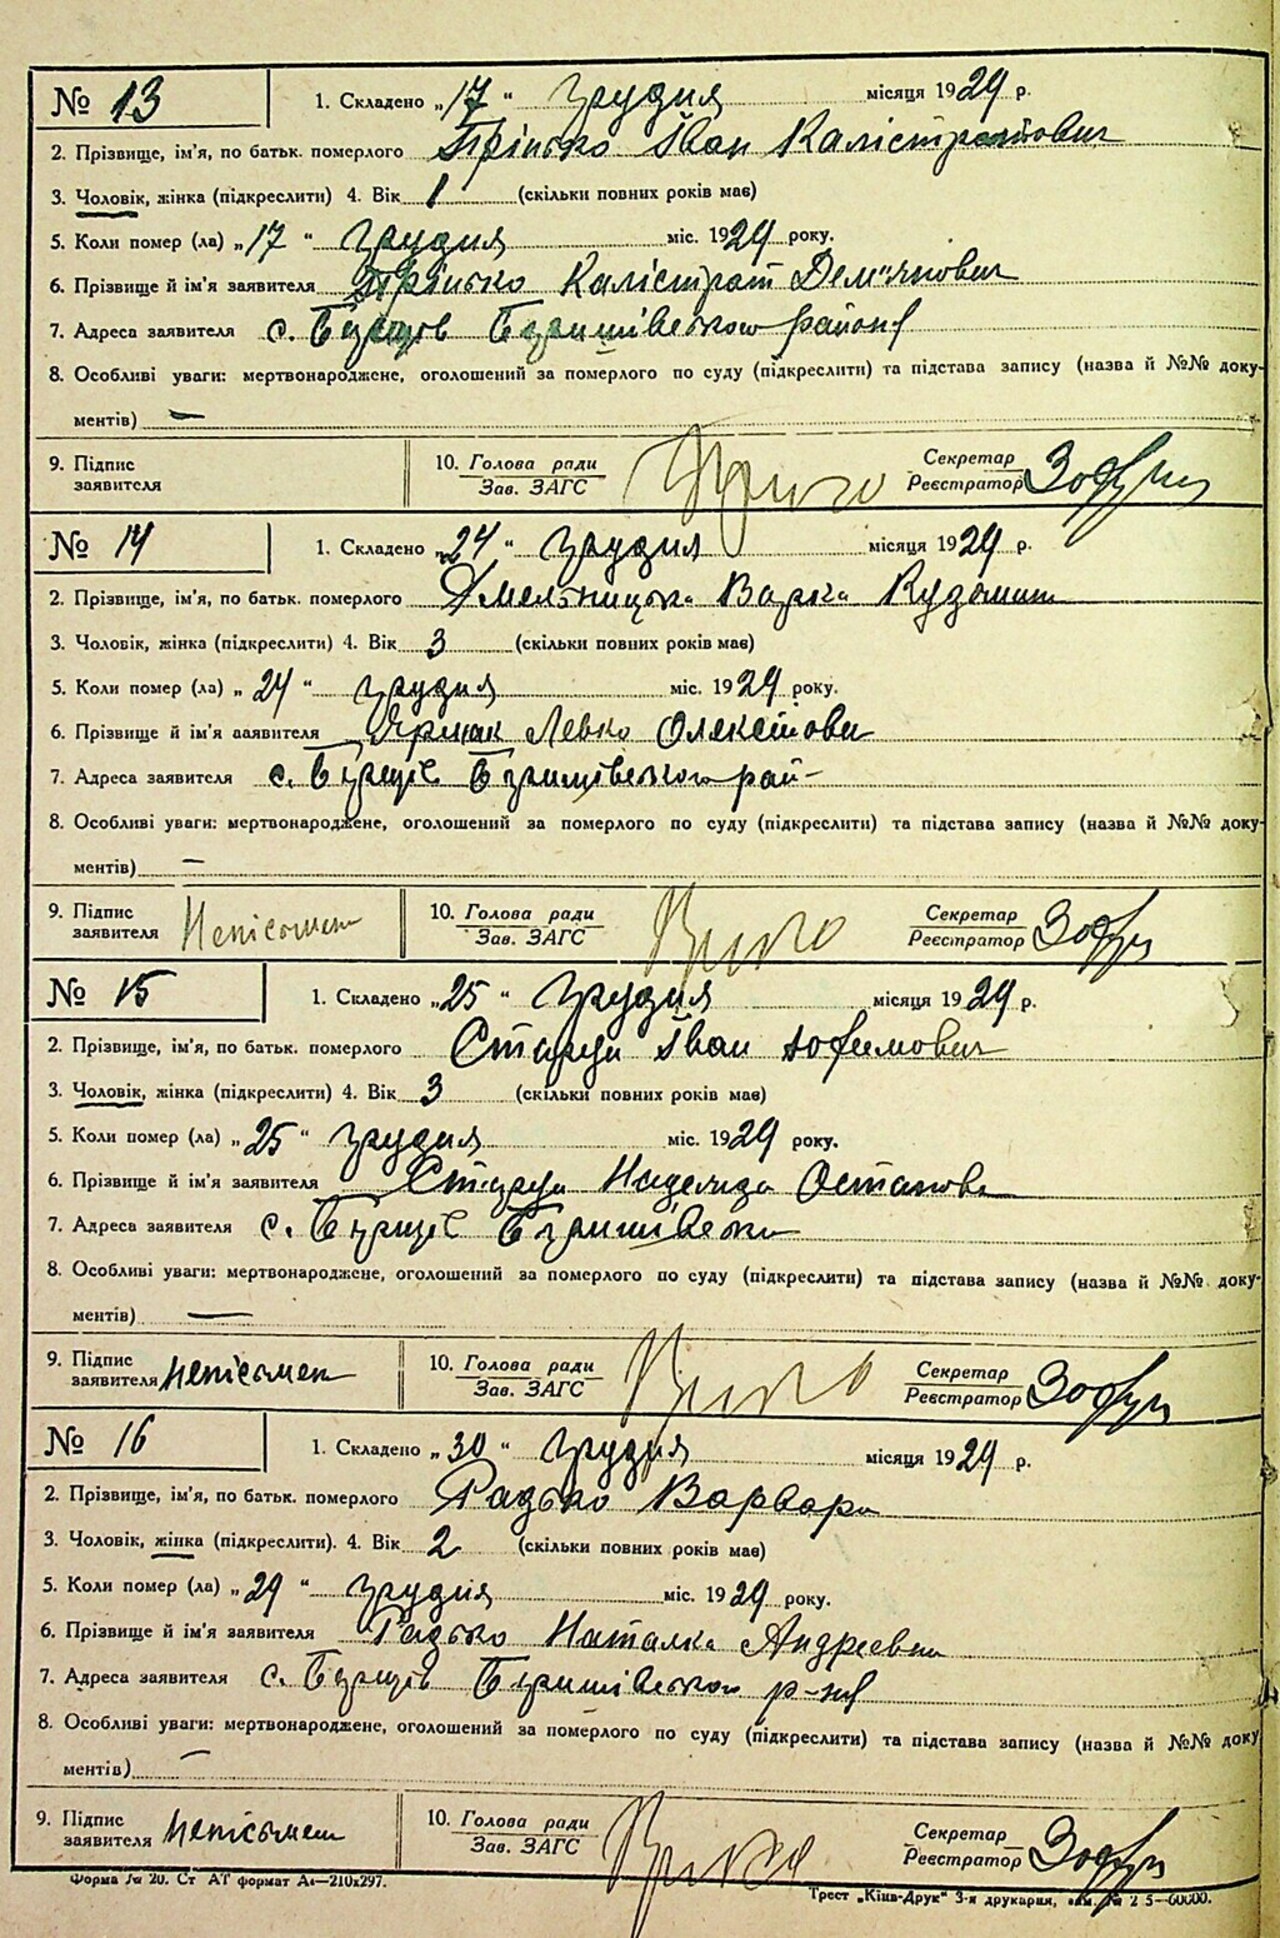 № 13 1. Складено „17“ грудня місяця 1929 р.
2. Прізвище, ім'я, по батьк. померлого Грінько Іван Калістратович
3. Чоловік, жінка (підкреслити) 4. Вік 1 (скільки повних років має)
5. Коли помер (ла) „17“ грудня міс. 1929 року.
6. Прізвище й ім'я заявителя Грінько Калістрат Дем'янович
7. Адреса заявителя с. Бзів Баришівського району
8. Особливі уваги: мертвонароджене, оголошений за померлого по суду (підкреслити) та підстава запису (назва й №№ доку-
ментів) —
9. Підпис 10. Голова ради Секретар
заявителя Зав. ЗАГС Реєстратор
№ 14 1. Складено „24“ грудня місяця 1929 р.
2. Прізвище, ім'я, по батьк. померлого Хмельницька Варка
3. Чоловік, жінка (підкреслити) 4. Вік 3 (скільки повних років має)
5. Коли помер (ла) „24“ грудня міс. 1929 року.
6. Прізвище й ім'я заявителя Ярмак Левко
7. Адреса заявителя с. Баришівського рай-
8. Особливі уваги: мертвонароджене, оголошений за померлого по суду (підкреслити) та підстава запису (назва й №№ доку-
ментів) —
9. Підпис Неписьмен 10. Голова ради Секретар
заявителя Зав. ЗАГС Реєстратор
№ 15 1. Складено „25“ грудня місяця 1929 р.
2. Прізвище, ім'я, по батьк. померлого Іван Юфимович
3. Чоловік, жінка (підкреслити) 4. Вік 3 (скільки повних років має)
5. Коли помер (ла) „25“ грудня міс. 1929 року.
6. Прізвище й ім'я заявителя Надежда Остапова
7. Адреса заявителя с.
8. Особливі уваги: мертвонароджене, оголошений за померлого по суду (підкреслити) та підстава запису (назва й №№ доку-
ментів) —
9. Підпис 10. Голова ради Секретар
заявителя непісьмен Зав. ЗАГС Реєстратор
№ 16 1. Складено „30“ грудня місяця 1929 р.
2. Прізвище, ім'я, по батьк. померлого Радько Варвара
3. Чоловік, жінка (підкреслити). 4. Вік 2 (скільки повних років має)
5. Коли помер (ла) „29“ грудня міс. 1929 року.
6. Прізвище й ім'я заявителя Радько Наталка Андреєвна
7. Адреса заявителя с. Баришівського р-ну
8. Особливі уваги: мертвонароджене, оголошений за померлого по суду (підкреслити) та підстава запису (назва й №№ доку
ментів) —
9. Підпис 10. Голова ради Секретар
заявителя непісьмен Зав. ЗАГС Реєстратор
Форма № 20. Ст АТ формат А₄—210x297. Трест „Київ-Друк“ 3-я друкарня, 60000.